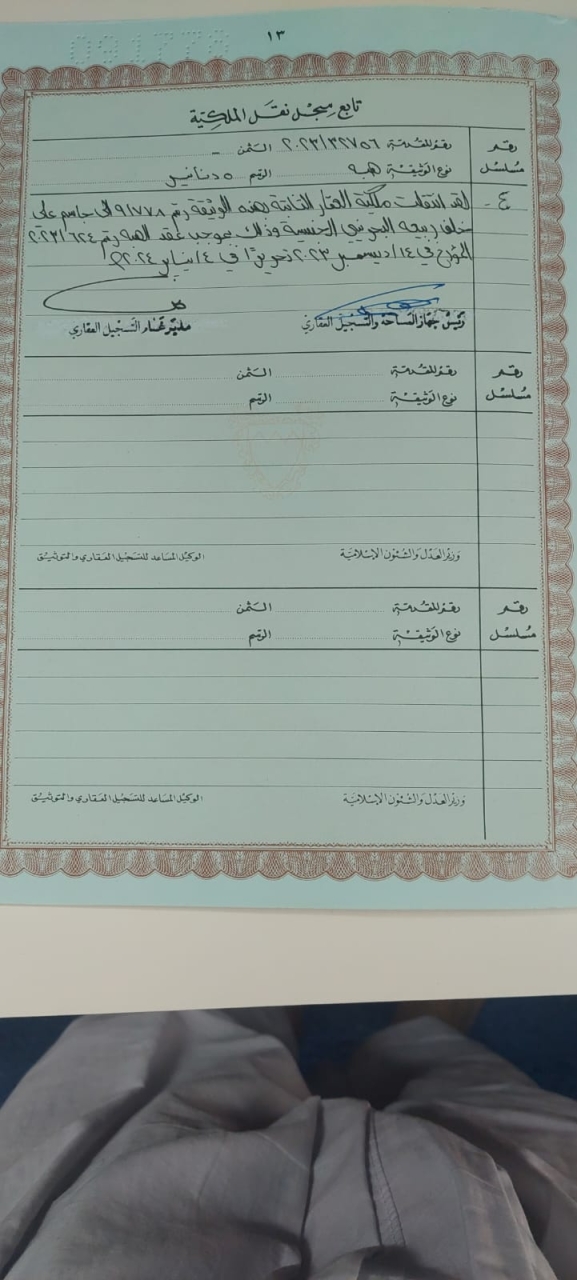 091778
١٣
تابع سجل نقل الملكية
رقم المقدمة ٢٠٢٣/٣٢٧٥٦ الثمن -
رقم مسلسل
نوع الوثيقة هبه الرسم ٥ دنانير
٤- لقد انتقلت ملكية العقار الثابتة بهذه الوثيقة رقم ٩١٧٧٨ الى جاسم علي
خلف ربيعه البحريني الجنسية وذلك بموجب عقد الهبه رقم ٢٠٢٣/٦٢٤
المؤرخ في ١٤/ديسمبر ٢٠٢٣ تحريرًا في ٤/يناير ٢٠٢٤م
رئيس جهاز المساحة والتسجيل العقاري
مدير عام التسجيل العقاري
رقم المقدمة الثمن
رقم مسلسل
نوع الوثيقة الرسم
وزير العدل والشئون الإسلامية
الوكيل المساعد للتسجيل العقاري والتوثيق
رقم المقدمة الثمن
رقم مسلسل
نوع الوثيقة الرسم
وزير العدل والشئون الإسلامية
الوكيل المساعد للتسجيل العقاري والتوثيق